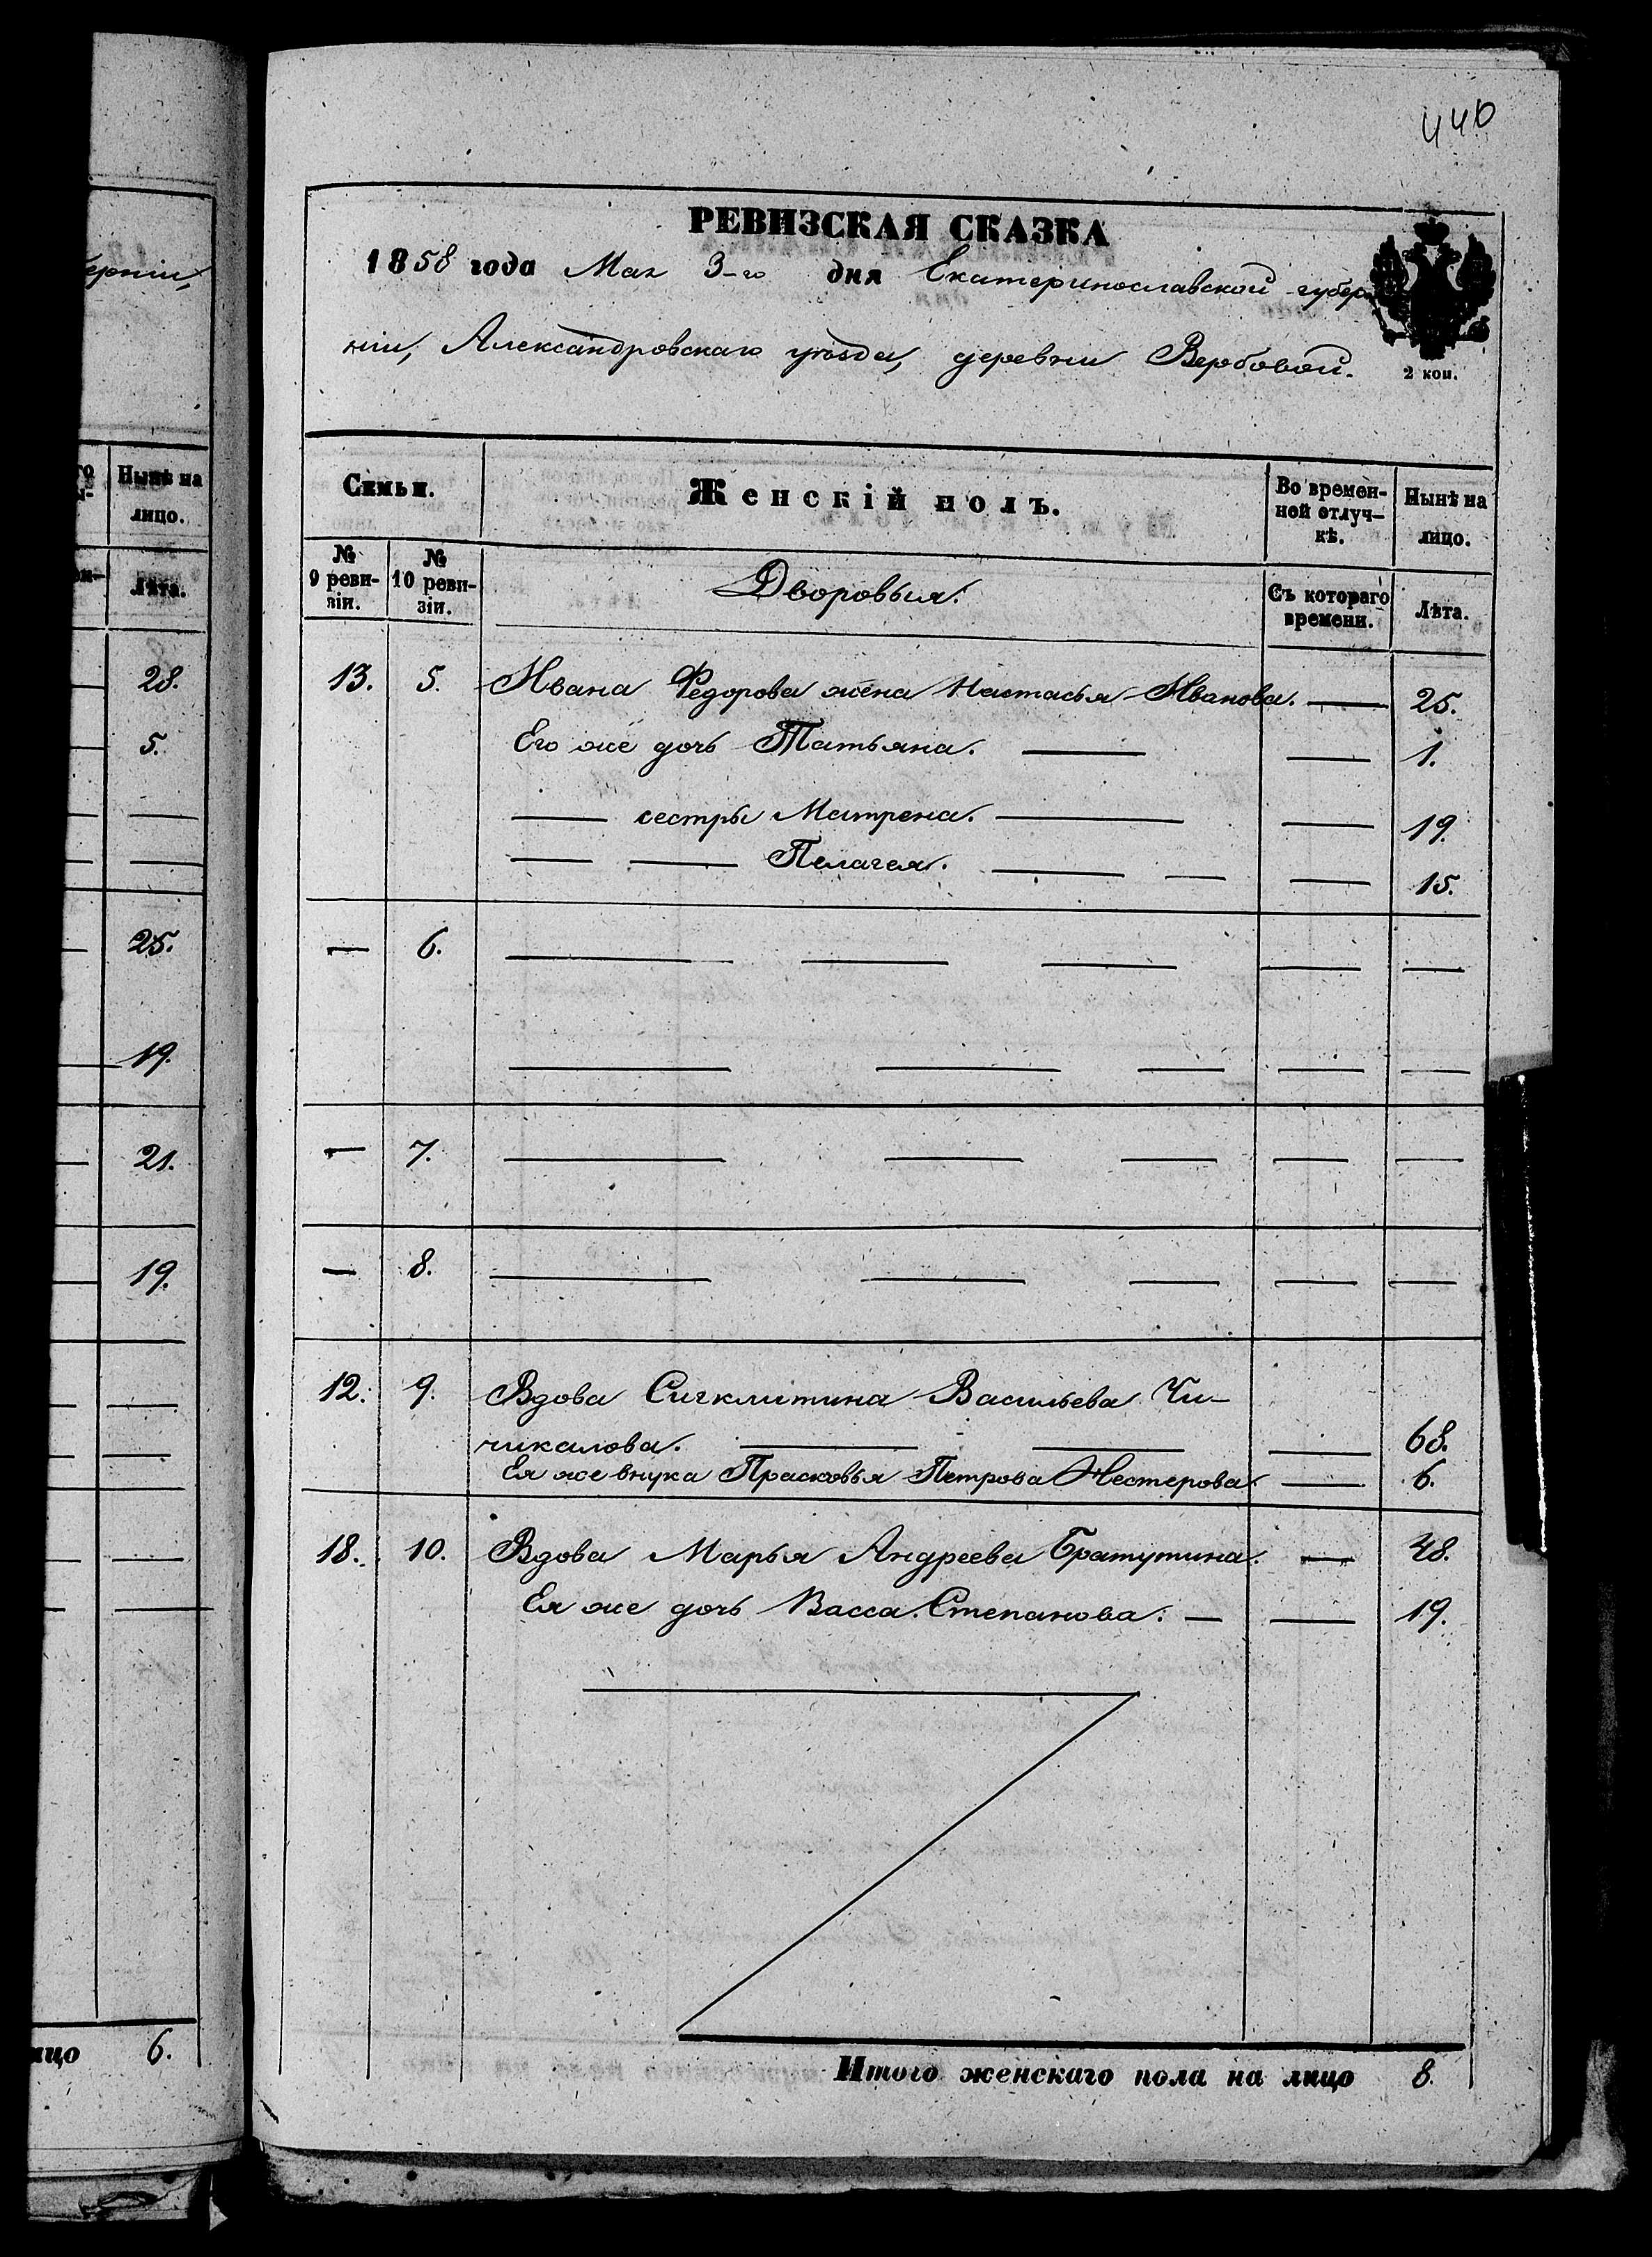 440
РЕВИЗСКАЯ СКАЗКА
1858 года Мая 3-го дня Екатеринославской губер
ніи, Александровскаго уѣзда, деревни Вербовой.
2 коп.
ерніи,
Нынѣ на
лицо.
Лѣта.
28.
5.
25.
19.
21.
19.
6.
Семьи.
Женскій полъ.
Во времен-
ной отлуч-
кѣ.
Нынѣ на
лицо.
№
9 реви-
зіи.
№
10 реви-
зіи.
Дворовыя.
Съ котораго
времени.
Лѣта.
13. 5. Ивана Федорова жена Настасья Иванова. — 25.
Его же дочь Татьяна. — — 1.
— сестры Матрена. — — 19.
— — Пелагея. — — — 15.
— 6. — — — — —
— — — — —
— 7. — — — — —
— 8. — — — — —
12. 9. Вдова Васильева Чи-
чикалова. — — — 68.
Ея же внука Прасковья Петрова Нестерова. — 6.
18. 10. Вдова Марья Андреева Братутина. — 48.
Ея же дочь Васса Степанова. — — 19.
Итого женскаго пола на лицо 8.